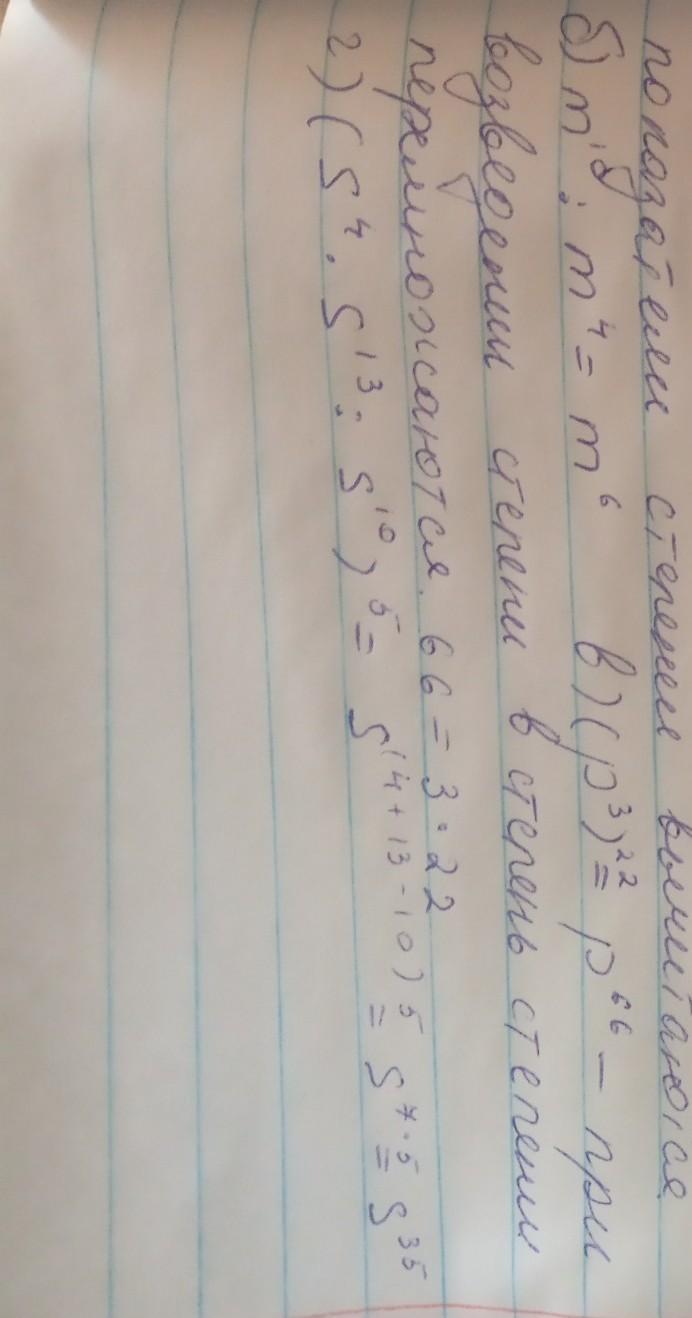 показатели степеней вычитаются
б) m¹⁰ : m⁴ = m⁶ в) (p³)²² = p⁶⁶ – при
возведении степени в степень степени
перемножаются. 66 = 3 · 22
г) (S⁴ · S¹³ : S¹⁰)⁵ = S⁽⁴⁺¹³⁻¹⁰⁾⁵ = S⁷·⁵ = S³⁵